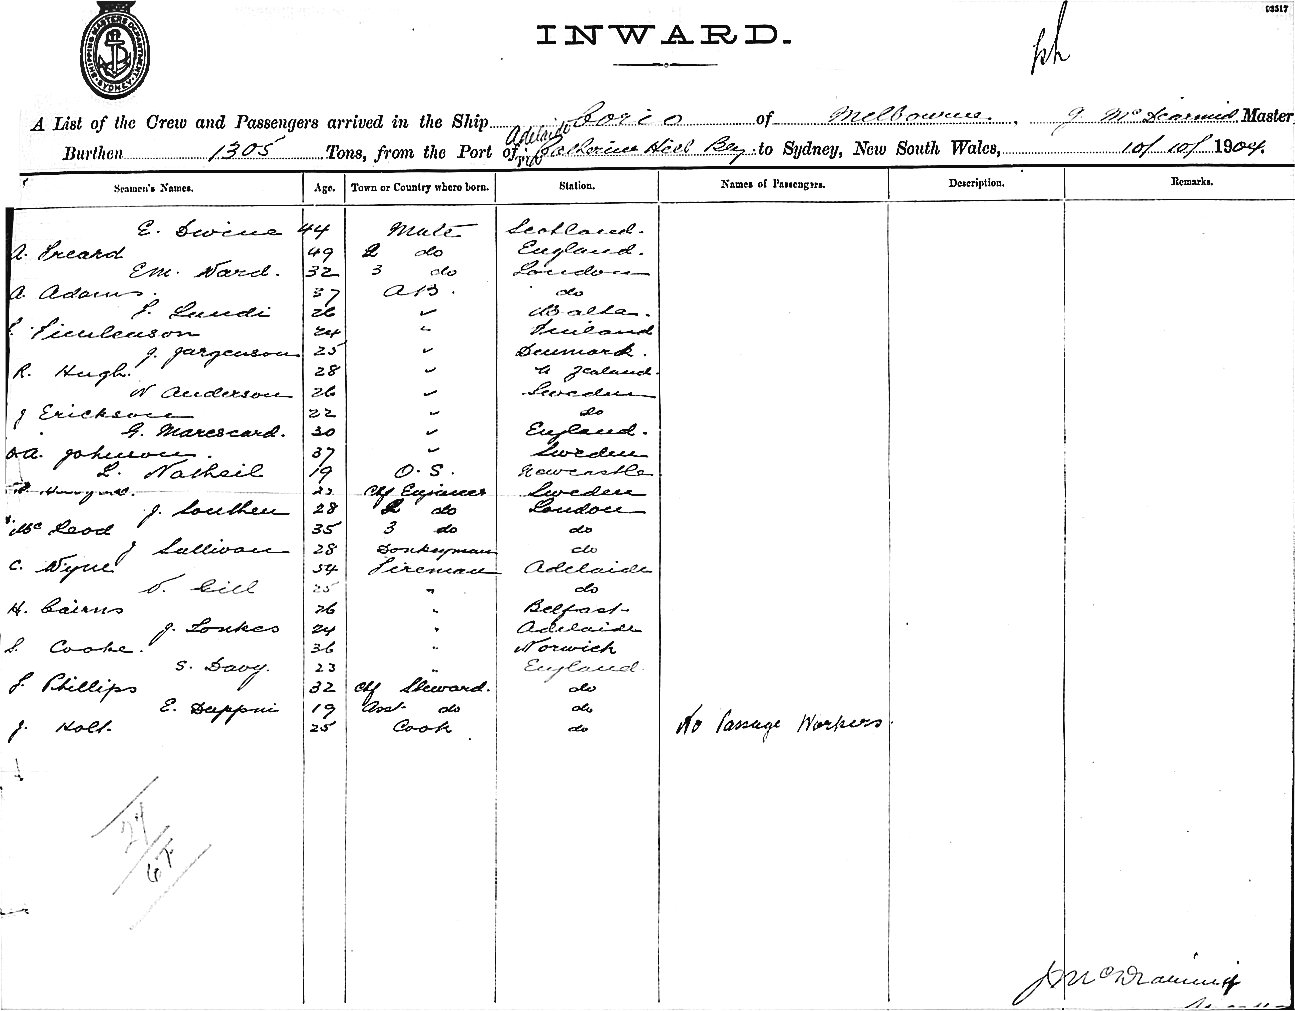 03517
INWARD.
SHIPPING MASTERS DEPARTMENT SYDNEY
A List of the Crew and Passengers arrived in the Ship Corio of Melbourne. J McDiarmid Master
Burthen 1305 Tons, from the Port of Adelaide via Catherine Hill Bay to Sydney, New South Wales, 10/10/1904.
Seamen's Names. Age. Town or Country where born. Station. Names of Passengers. Description. Remarks.
E. Devine 44 Mate Scotland.
A. 49 2 do England.
EM. Ward. 32 3 do London
A. Adams. 37 AB. do
Lundi 26 " Malta.
24 " Finland
J. Jargenson 25 " Denmark.
R. Hugh. 28 " N Zealand.
N Anderson 26 " Sweden
J Erickson 22 " do
G. Marescard. 30 " England.
A. Johnson. 37 " Sweden
L. Natheil 19 O.S. Newcastle
Chf Engineer Sweden
J. Southen 28 2 do London
McLeod 35 3 do do
J Sullivan 28 Donkeyman do
C. Wyne 54 Fireman Adelaide
Gill 25 " do
H. Cairns 26 " Belfast
J. 24 " Adelaide
Cooke. 36 " Norwich
S. Davy. 23 " England.
Phillips 32 Chf Steward. do
E. Duppni 19 Asst do do
J. Holt. 25 Cook do No Passage Workers